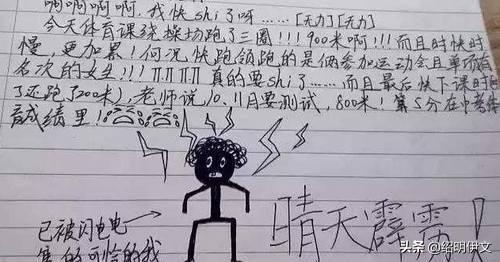 啊啊啊啊,我快shi了呀……[无力][无力]
今天体育课绕操场跑了三圈!!!900米啊!!!而且时快时
慢,更加累!何况,快跑领跑的是俩参加运动会且单项有
名次的女生!!! 真的要shi了……而且最后快下课时
了还跑了200米),老师说,10、11月要测试,800米!算5分在中考
试成绩里!
已被闪电电
焦的可怜的我
晴天霹雳!
头条@绍明伊文